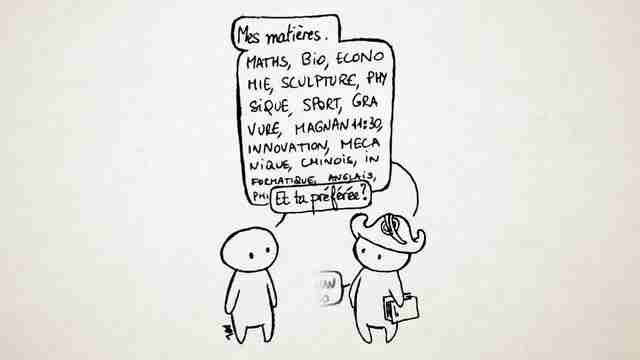 Mes matières.
MATHS, BIO, ECONO
MIE, SCULPTURE, PHY
SIQUE, SPORT, GRA
VURE, MAGNAN 11:30,
INNOVATION, MECA
NIQUE, CHINOIS, IN
FORMATIQUE, ANGLAIS,
Et ta préférée?